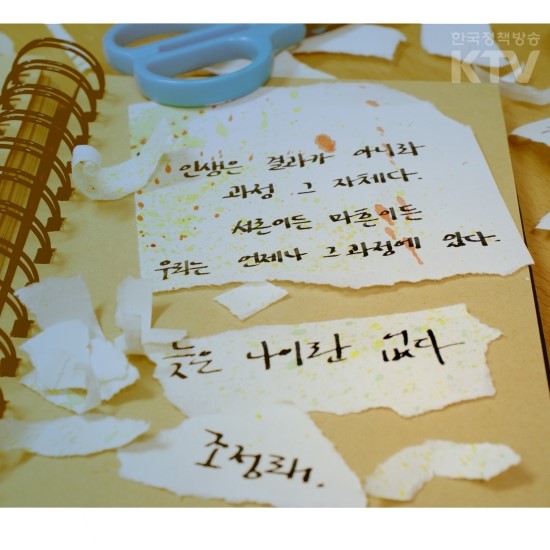 한국정책방송
KTV
인생은 결과가 아니라
과정 그 자체다.
서른이든 마흔이든
우리는 언제나 그 과정에 있다.
늦은 나이란 없다
조정래.